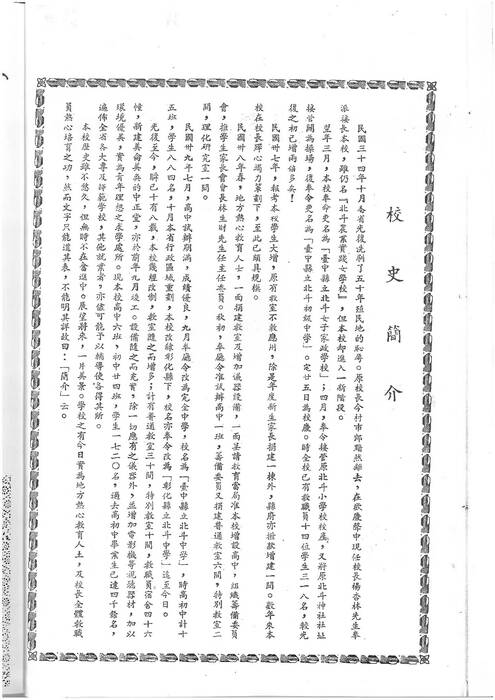 校史簡介
民國三十四年十月吾省光復洗刷了五十年殖民地的恥辱。原校長今村市郎黯然離去，在歡慶聲中現任校長楊杏林先生奉
派接長本校，雖仍名『北斗農業實踐女學校』，但本校却進入一新階段。
翌年三月，本校奉命更名為「臺中縣立北斗女子家政學校」；四月，奉令接管原北斗小學校校產，又將原北斗神社社址
接管闢為操場，復奉令更名為「臺中縣立北斗初級中學」。定廿五日為校慶。時全校已有教職員十四位學生三一八名，較光
復之初已增兩倍多矣！
民國卅七年，報考本校學生大增，原有教室不敷應用，除是年度新生家長捐建一棟外，縣府亦撥款增建一間。數年來本
校在校長殫心竭力策劃下，至此已頗具規模。
民國卅八年春，地方熱心教育人士，一面捐建教室及增加儀器設備，一面呈請教育當局准本校增設高中，組織籌備委員
會，推學生家長會會長林生財先生任主任委員。秋初，奉廳令准試辦高中一班，籌備委員又捐建普通教室六間，特別教室二
間，理化研究室一間。
民國卅九年七月，高中試辦期滿，成績優良，九月奉廳令改為完全中學，校名為「臺中縣立北斗中學」，時高初中計十
五班，學生八八四名，十月本省行政區域重劃，本校改隸彰化縣下，校名亦奉令改為「彰化縣立北斗中學」迄至今日。
光復至今，瞬已十有八載，本校幾經改制，教室隨之而增多；計有普通教室三十間，特別教室十間，教職員宿舍四十六
幢，新建美侖美奐的中正堂，亦於前年九月竣工。設備隨之而充實，除一切應有之儀器外，並增加電影機等視聽器材，加以
環境優美，實為青年理想之求學處所。現本校高中六班，初中廿四班，學生一七二〇名，過去高初中畢業生已達四千餘名，
遍佈全省各大專及師範學校，其他就業者，亦儘可能予以輔導使各得其所。
本校歷史雖不悠久，但無時不在奮進中。展望將來，一片美景。學校之有今日實為地方熱心教育人士，及校長全體教職
員熱心培育之功，然而文字只能道其表，不能明其詳故曰：「簡介」云。